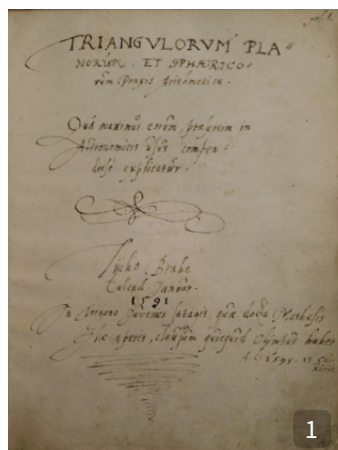 fol. 1.
TRIANGVLORVM PLA"
NORVM ET SPHÆRICO-
rum Praxis Arithmetica.
Qua maximus eorum, præsertim in
Astronomicis usus compen-
diose explicatur.
Tycho Brahe
Calend. Januar.
1591
quæ docta Mathesis
aperit, clausum quicquid Olympus habet
1